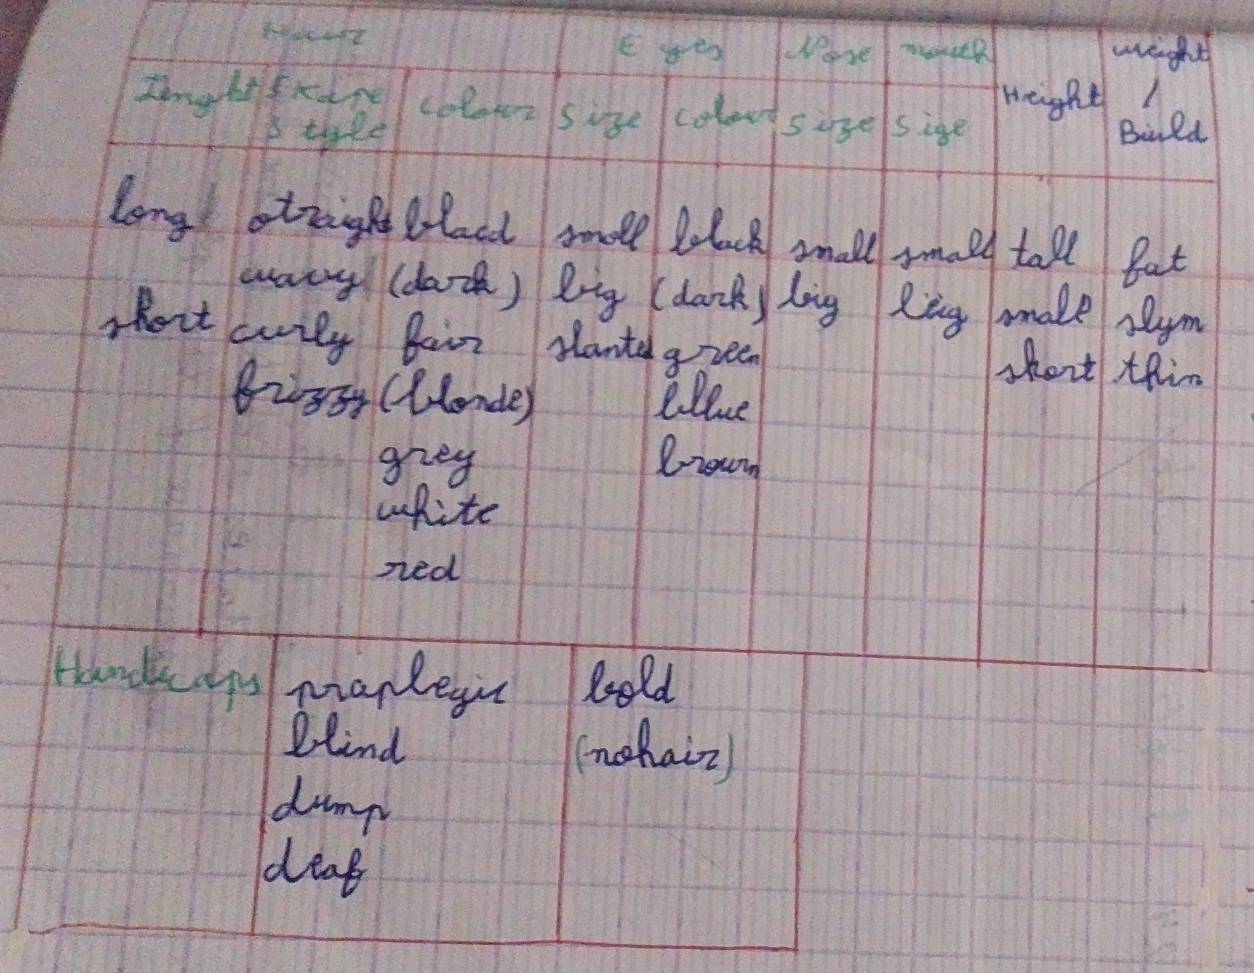 Hair Eyes Nose mouth Height weight
Lenght Shape colour size colour size size /
style Build
long straight blacd small black small small tall fat
wavy (dark) big (dark) big big small slym
short curly fair slanted green short thin
frizzy (blonde) bllue
grey brown
white
red
Handicaps praplegic bold
blind (nohair)
dump
deaf